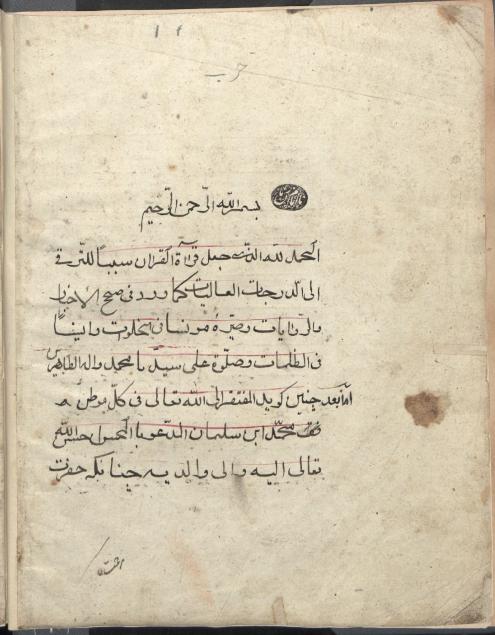 حرب
بسم الله الرحمن الرحيم
الحمد لله الذى جعل قراءة القران سببا للترقى
الى الدرجات العاليات كما ورد فى صحيح الاخبار
والروايات وصيره مونسا فى الخلوات وانيسا
فى الظلمات وصلوة على سيدنا محمد واله الطاهرين
اما بعد چنين كويد المفتقر الى الله تعالى فى كل موطن
محمد ابن سليمان المدعو بالمحسن احسن الله
تعالى اليه والى والديه چنانكه حضرت